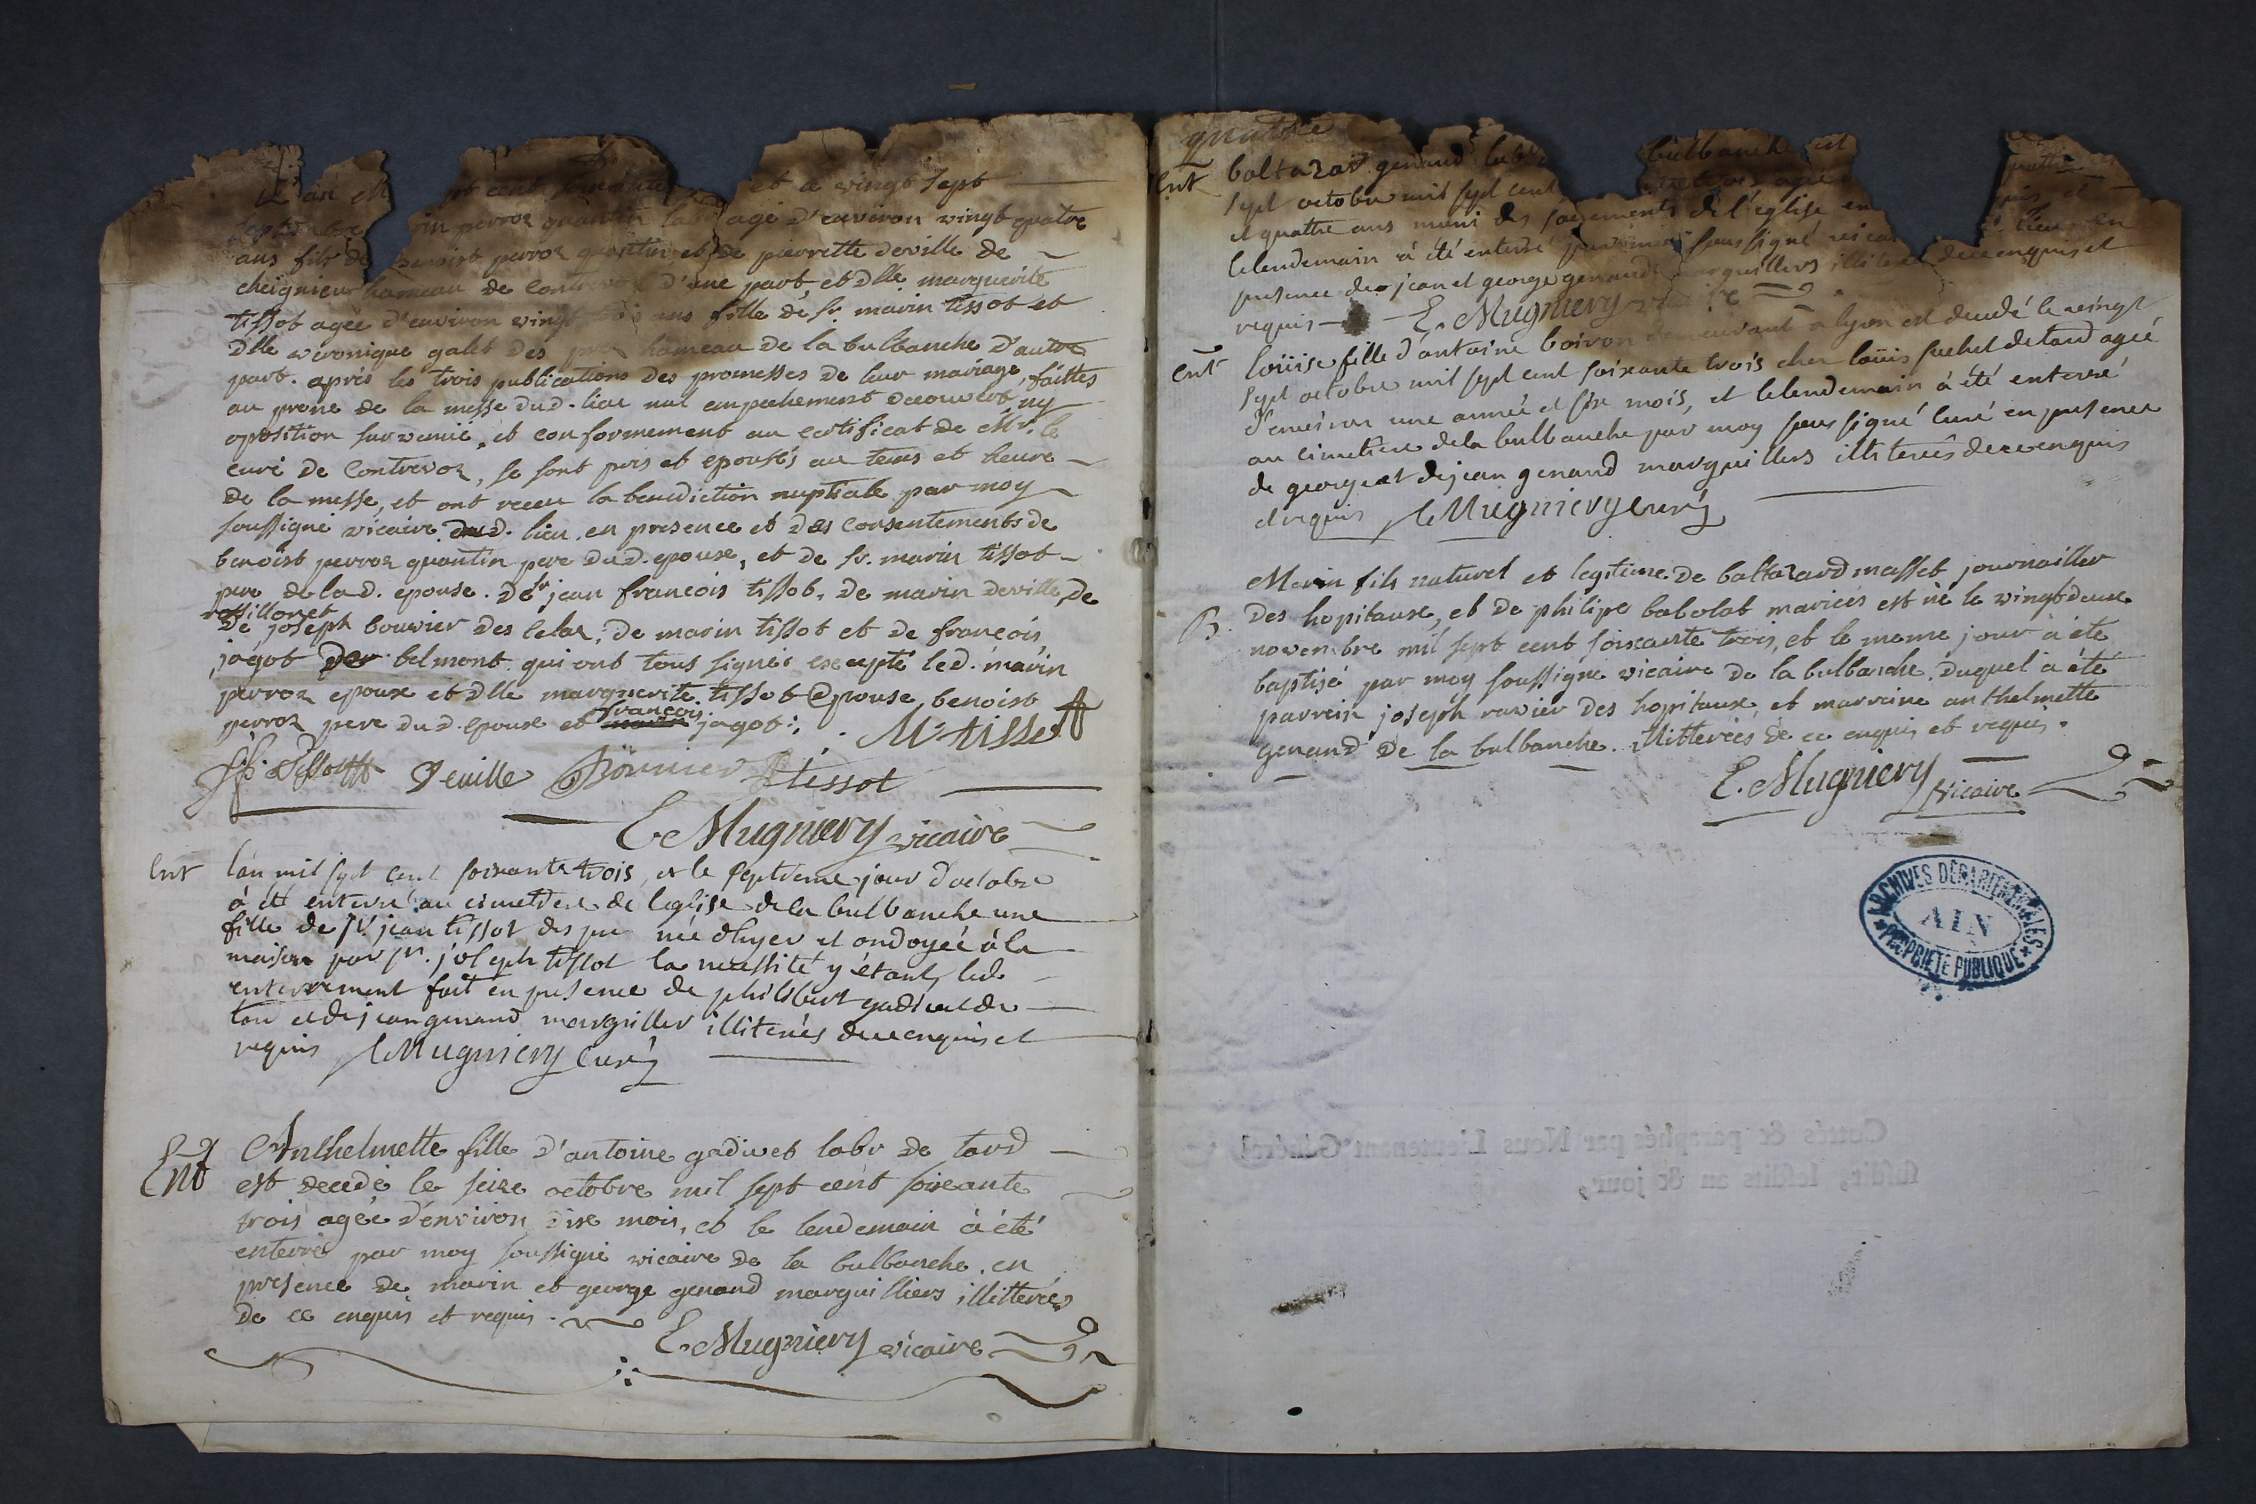 L'an et a vingt sept
perroz quantin agé d'environ vingt quatre
ans fils de benoist perroz quantin et de pierrette deville de
cheignieu hameau de Contrevoz d'une part, et dlle marguerite
tissot agée d'environ vingt ans fille de Sr. marin tissot et
dlle veronique galet des hameau de la bulbanche d'autre
part. après les trois publications des promesses de leur mariage faittes
au prone de la messe dud. lieu nul empechement decouvert ny
oposition survenüe, et conformement au certificat de Mr. le
curé de Contrevoz, se sont pris et epousés au tems et heure
de la messe, et ont receu la benediction nuptiale par moy
soussigné vicaire dud. lieu, en presence et des consentements de
benoist perroz quantin pere dud. epoux, et de sr. marin tissot
pere de lad. epouse. de sr jean françois tissot, de marin deville de
rossillonet
de joseph bouvier des de marin tissot et de françois
jagot belmont qui ont tous signés excepté led. marin
perroz epoux et dlle marguerite tissot epouse, benoist
perroz pere dud. epoux et françois jagot:
M. tissot
Deville Bouvier tissot
E. Mugniery vicaire
Ent
l'an mil sept cent soixante trois, et le septieme jour d'octobre
à été enterré au cimetiere de leglise de la bulbanche une
fille de sr. jean tissot des née d'hyer et ondoyeé à la
maison par sr. joseph tissot la necessité y étant, led.
enterrement fait en presence de philibert gadivet de
tard et de jean genand marguiller illiterés de ce enquis et
requis Mugniery curé
Ent
Anthelmette fille d'antoine gadivet labr de tard
est decedé le seize octobre mil sept cent soixante
trois agée d'environ dix mois, et le lendemain à été
enterré par moy soussigné vicaire de la bulbanche. en
presence de marin et george genand marguilliers illitterés
de ce enquis et requis.
E. Mugniery vicaire
quatre
Ent
baltazar genand bulbanche est
sept octobre mil sept cent
et quattre ans muni des sacrements de l'église
le lendemain à été enterré par moi soussigné lieu en
presence de jean et george genand marguillers illiterés de ce enquis et
requis E. Mugniery vicaire
Ent
loüise fille d'antoine boiron demeurant a lyon est decedé le vingt
sept octobre mil sept cent soixante trois chez loüis suchet de tard ageé
d'environ une année et six mois, et le lendemain à été enterré
au cimetiere de la bulbanche par moy soussigné curé en presence
de george et de jean genand marguillers illiterés de ce enquis
et requis Mugniery curé
B.
Marin fils naturel et legitime de baltazard masset journailler
des hopitaux, et de philipe babolat mariées est né le vingt deux
novembre mil sept cent soixante trois, et le meme jour à été
baptisé par moy soussigné vicaire de la bulbanche. duquel à été
parrein joseph ravier des hopitaux, et marreine anthelmette
genand de la bulbanche. illitterées de ce enquis et requis.
E. Mugniery vicaire
ARCHIVES DÉPARTEMENTALES
AIN
PROPRIÉTÉ PUBLIQUE
Cottés & paraphés par Nous Lieutenant Général
susdit, lesdits an & jour,